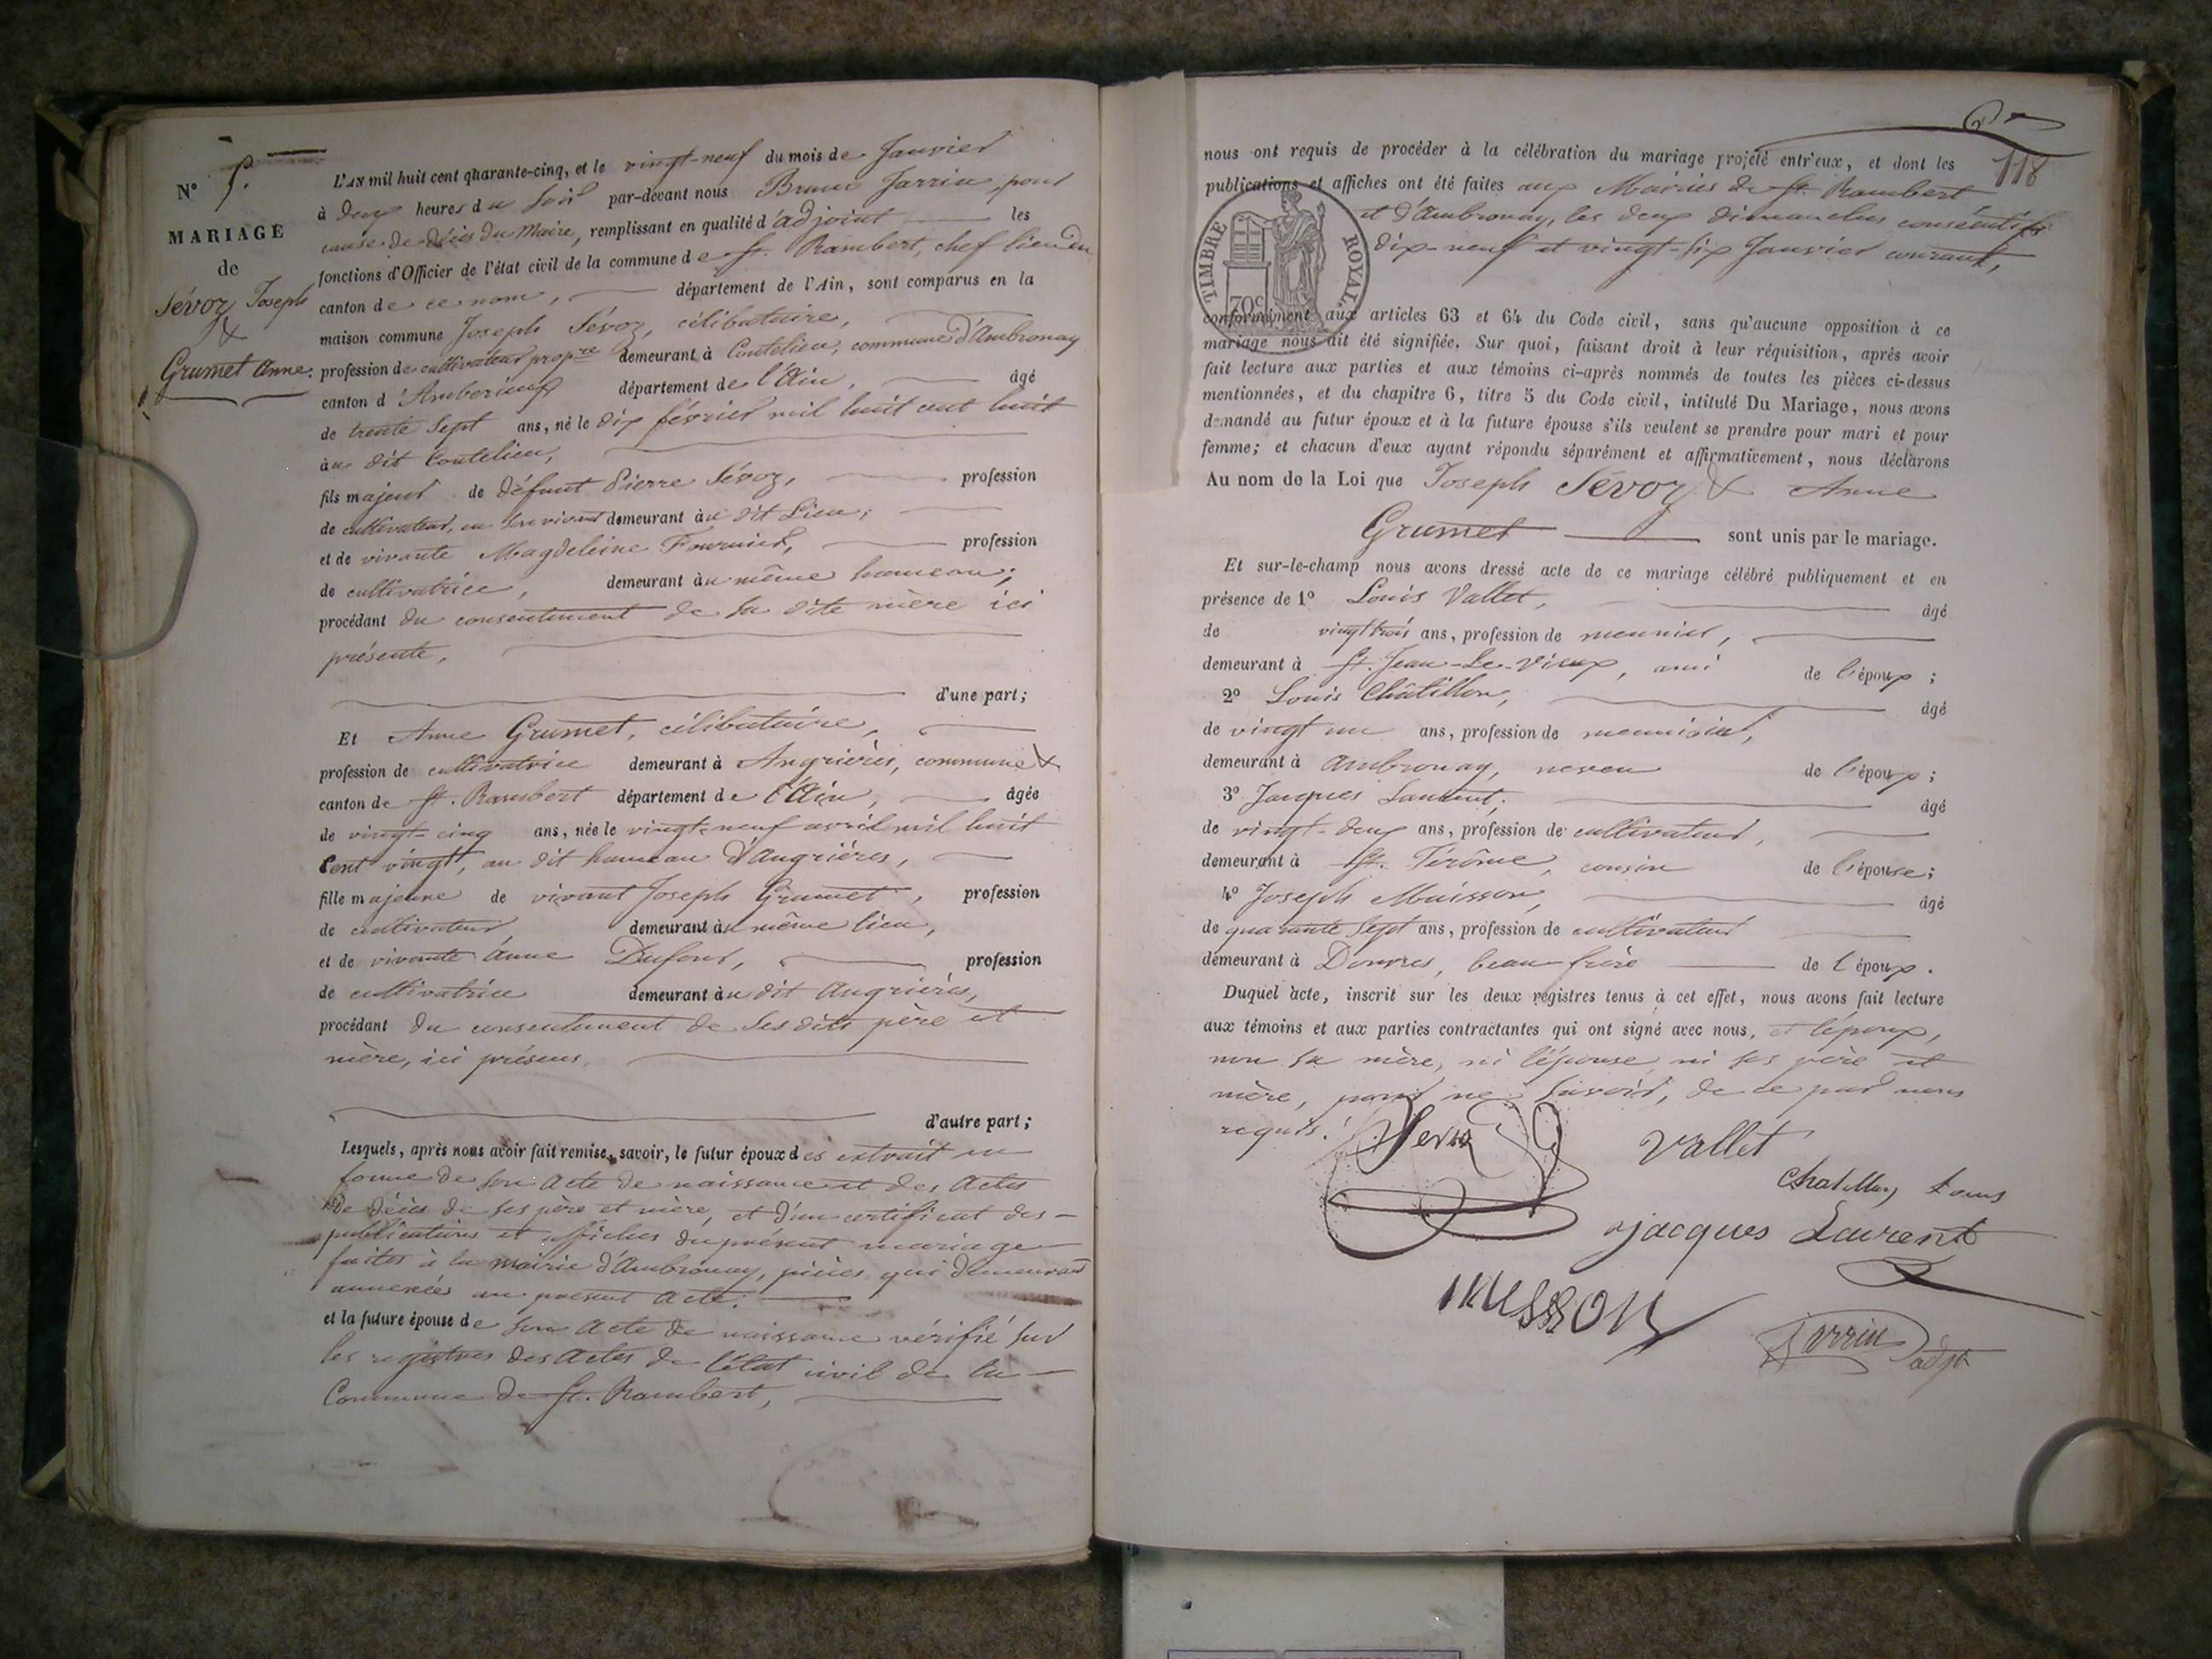 N° 5.
MARIAGE
de
Sévoz Joseph
&
Grumet Anne.
L'AN mil huit cent quarante-cinq, et le vingt-neuf du mois de Janvier
à deux heures du soir par-devant nous Bruno Jarrin, pour
cause de décès du Maire, remplissant en qualité d'adjoint les
fonctions d'Officier de l'état civil de la commune de St. Rambert, chef lieu du
canton de ce nom, département de l'Ain, sont comparus en la
maison commune Joseph Sévoz, célibataire,
profession de cultivateur propre demeurant à Coutelieu, commune d'Ambronay
canton d'Amberieux département de l'Ain, âgé
de trente sept ans, né le dix février mil huit cent huit
au dit Coutelieu,
fils majeur de défunt Pierre Sévoz, profession
de cultivateur, en son vivant demeurant au dit Lieu;
et de vivante Magdeleine Fournier, profession
de cultivatrice, demeurant au même hameau;
procédant du consentement de sa dite mère ici
présente,
d'une part;
Et Anne Grumet, célibataire,
profession de cultivatrice demeurant à Angrières, commune &
canton de St. Rambert département de l'Ain, âgée
de vingt-cinq ans, née le vingt-neuf avril mil huit
Cent vingt, au dit hameau d'Angrières,
fille majeure de vivant Joseph Grumet, profession
de cultivateur demeurant au même lieu,
et de vivante Anne Dufour, profession
de cultivatrice demeurant au dit Angrières,
procédant du consentement de ses dits père et
mère, ici présens.
d'autre part;
Lesquels, après nous avoir fait remise, savoir, le futur époux des extrait en
forme de son acte de naissance et des Actes
de décès de ses père et mère, et d'un certificat des
publications et affiches du présent mariage
faites à la mairie d'Ambronay, pièces qui demeurent
annexées au présent acte;
et la future épouse de son acte de naissance vérifié sur
les registres des Actes de l'état civil de la
Commune de St. Rambert,
118
nous ont requis de procéder à la célébration du mariage projeté entr'eux, et dont les
publications et affiches ont été faites aux Mairies de St. Rambert
et d'Ambronay, les deux dimanches consécutifs
dix-neuf et vingt-six Janvier courant,
TIMBRE ROYAL
70c
conformément aux articles 63 et 64 du Code civil, sans qu'aucune opposition à ce
mariage nous ait été signifiée. Sur quoi, faisant droit à leur réquisition, après avoir
fait lecture aux parties et aux témoins ci-après nommés de toutes les pièces ci-dessus
mentionnées, et du chapitre 6, titre 5 du Code civil, intitulé Du Mariage, nous avons
demandé au futur époux et à la future épouse s'ils veulent se prendre pour mari et pour
femme; et chacun d'eux ayant répondu séparément et affirmativement, nous déclarons
Au nom de la Loi que Joseph Sévoz & Anne
Grumet sont unis par le mariage.
Et sur-le-champ nous avons dressé acte de ce mariage célébré publiquement et en
présence de 1° Louis Vallet, âgé
de vingt trois ans, profession de meunier,
demeurant à St. Jean-Le-Vieux, ami de l'époux;
2° Louis Châtillon, âgé
de vingt un ans, profession de menuisier,
demeurant à Ambronay, neveu de l'époux;
3° Jacques Laurent, âgé
de vingt-deux ans, profession de cultivateur,
demeurant à St. Jérôme, cousin de l'épouse;
4° Joseph Muisson, âgé
de quarante sept ans, profession de cultivateur
demeurant à Douvres, beau-frère de l'époux.
Duquel acte, inscrit sur les deux registres tenus à cet effet, nous avons fait lecture
aux témoins et aux parties contractantes qui ont signé avec nous, et l'époux,
non sa mère, ni l'épouse ni ses père et
mère, pour ne savoir, de ce par nous
requis.
Sevoz
Vallet
Chatillon Louis
jacques Laurent
musson
Jarrin adjt